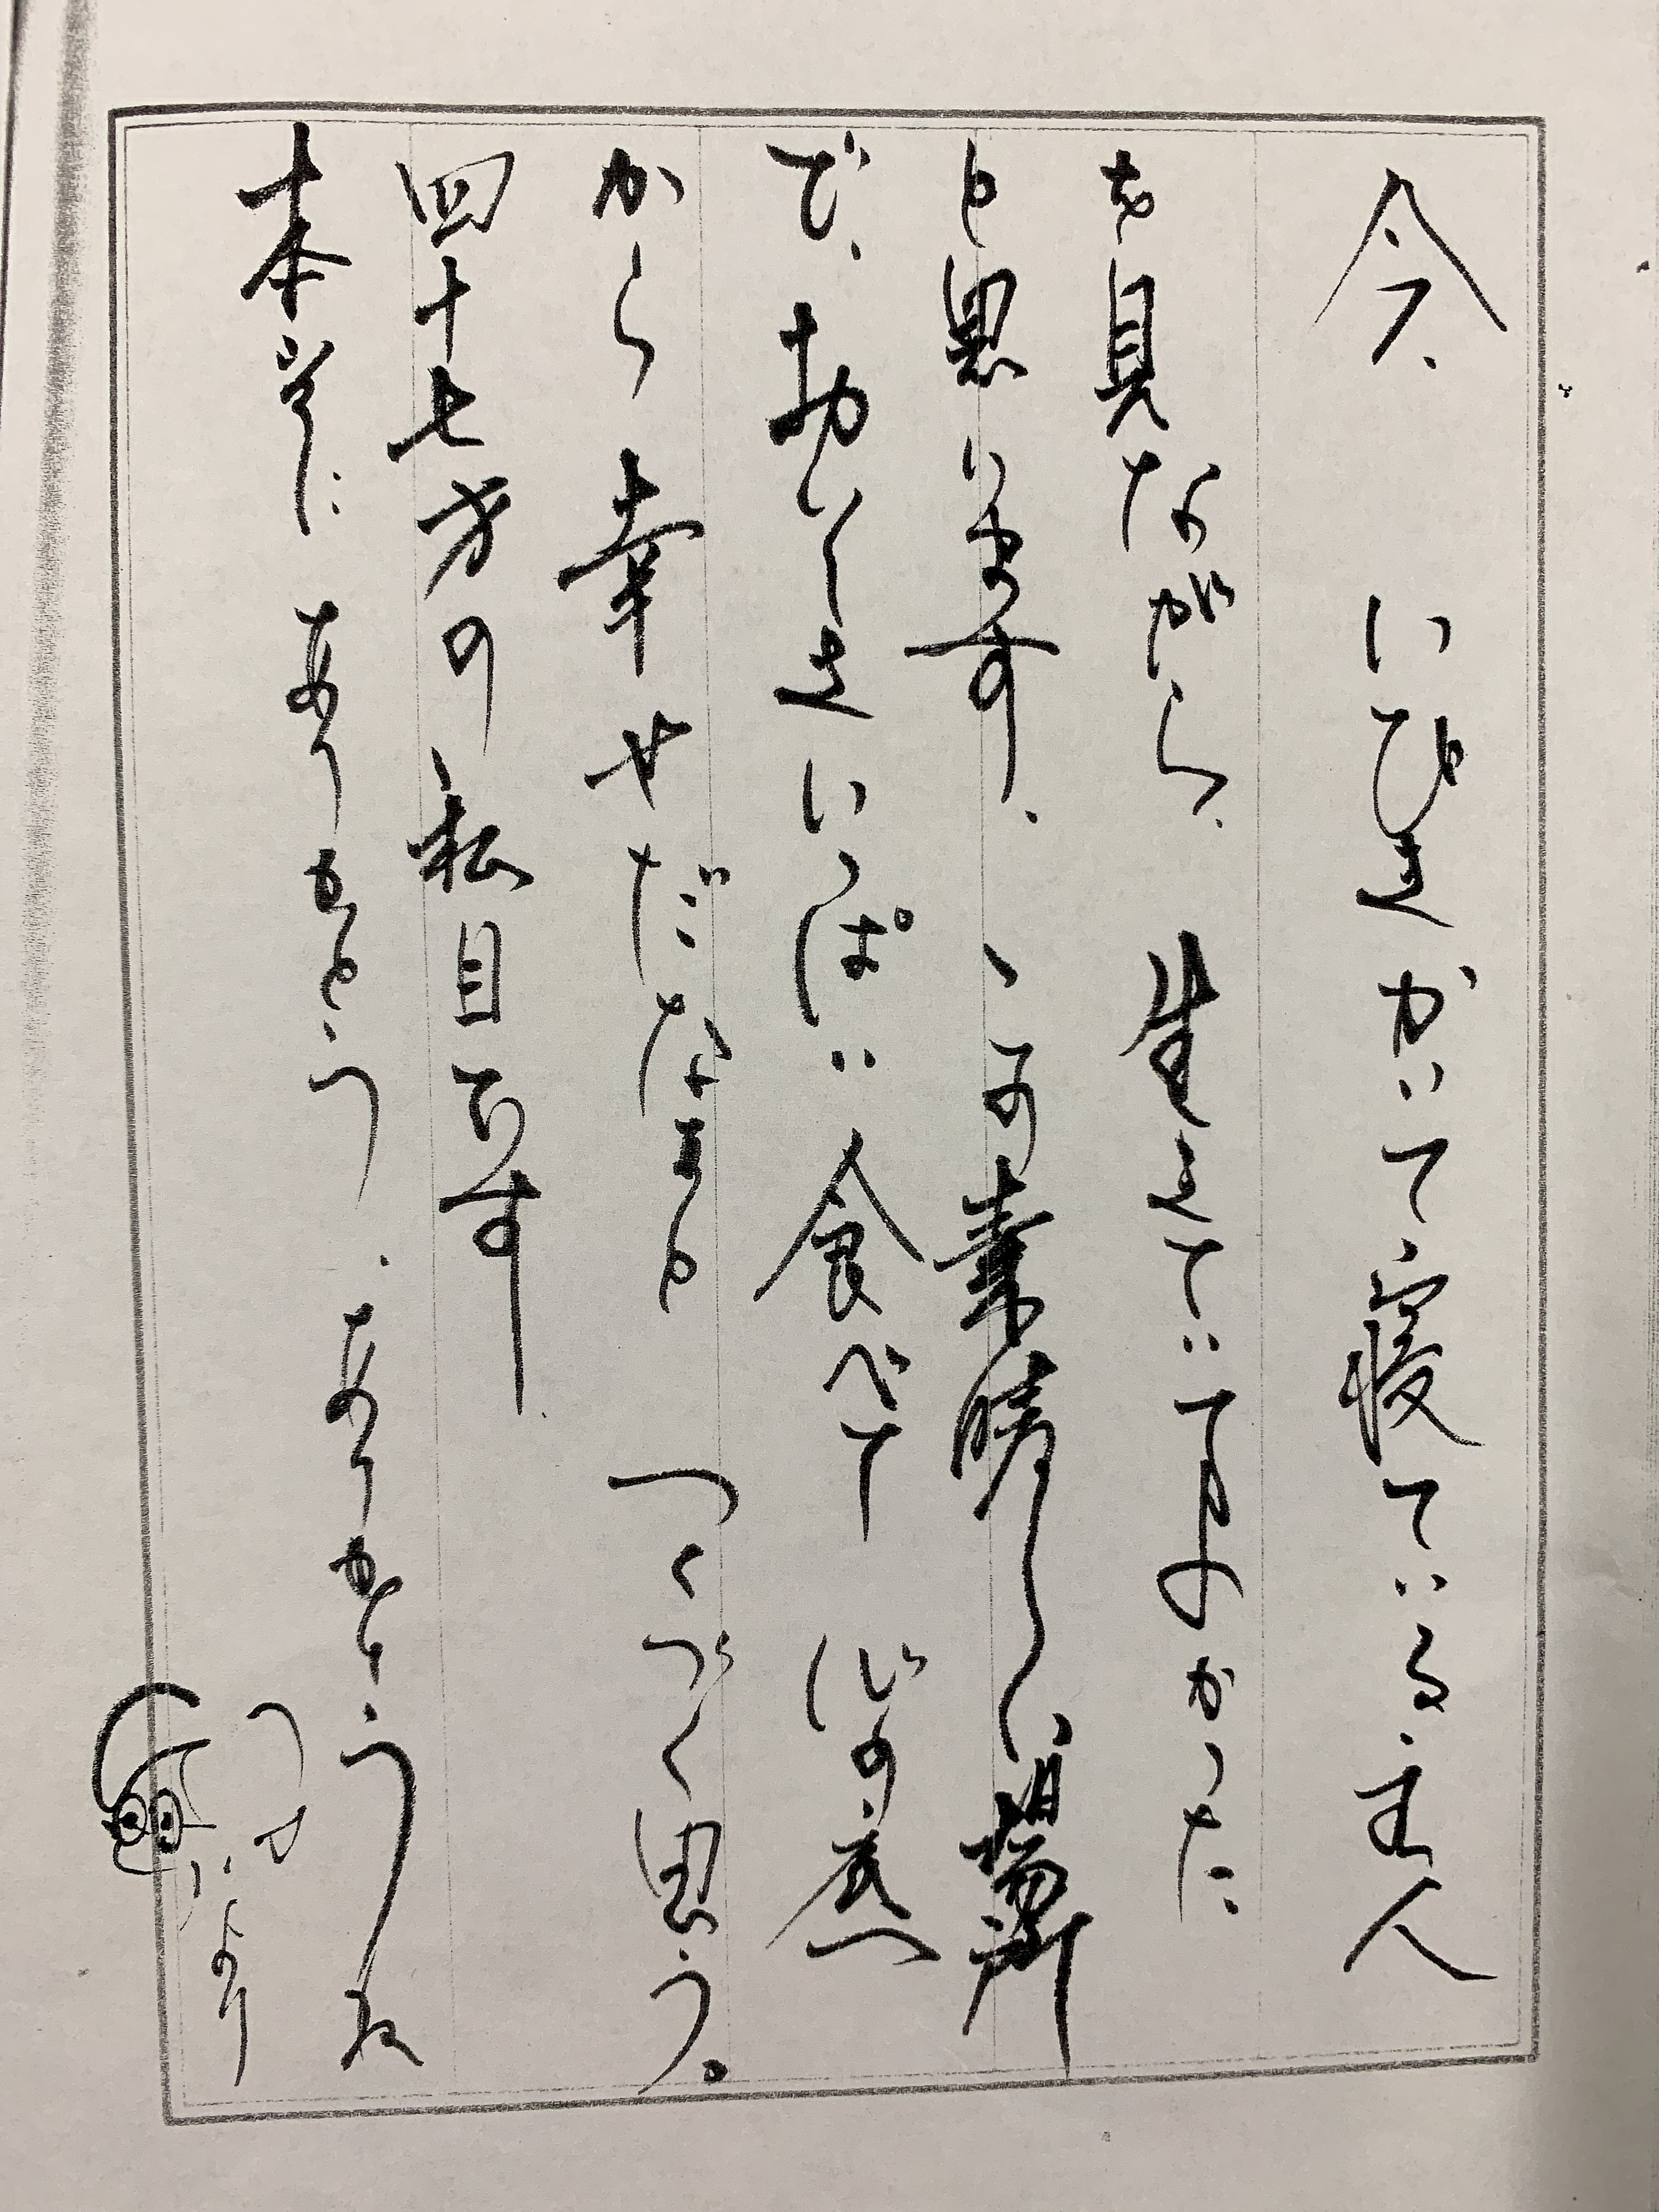 今、いびきかいて寝ている主人
を見ながら、生きていてよかった
と思います、こんな素晴しい場所
で、おいしくいっぱい食べて心の底
から幸せだなあとつくづく思う。
四十七才の私目です
本当にありがとう、ありがとうね
より